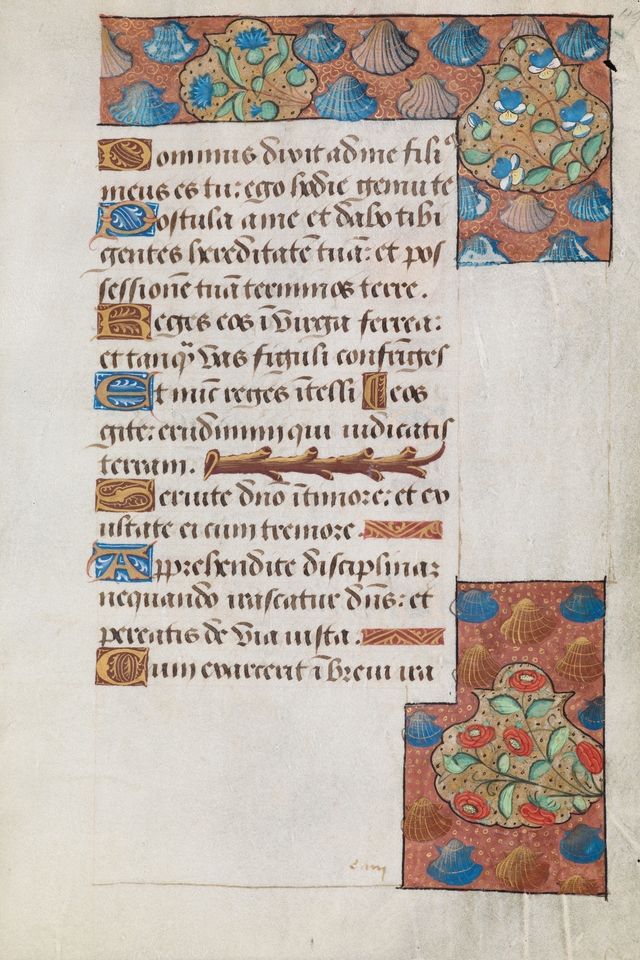 Dominus dixit ad me fili⁹
meus es tu: ego hodie genui te
Postula a me et dabo tibi
gentes hereditatē tuā: et pos
sessionē tuā terminos terre.
Reges eos ī virga ferrea:
et tanq̄ vas figuli confringes
Et nunc reges ītelli
eos
gite: erudimini qui iudicatis
terram.
Seruite dn̄o ī timore: et ex
ultate ei cum tremore.
Apprehendite disciplinaꝫ
nequando irascatur dn̄s: et
pereatis de via iusta.
Cum exarcerit ī breui ira